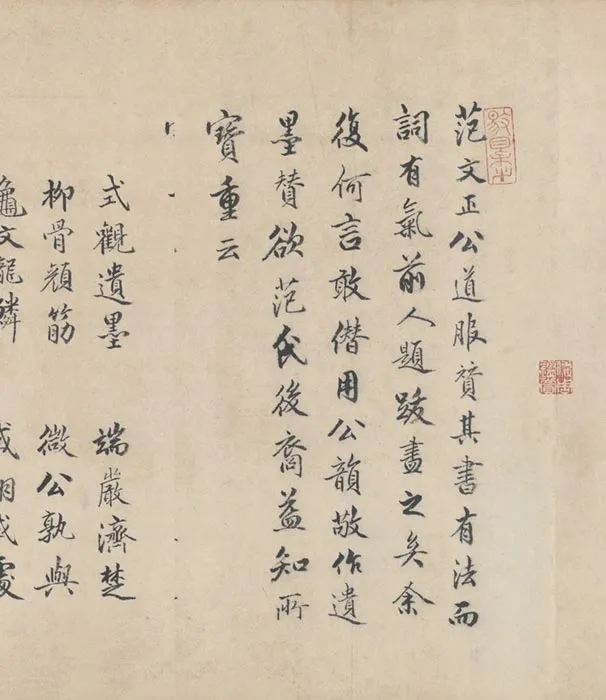 范文正公道服贊其書有法而
詞有氣前人題跋盡之矣余
復何言敢僭用公韻敬作遺
墨贊欲范氏後裔益知所
寶重云
式觀遺墨 端嚴濟楚
柳骨顏筋 微公孰與
龜文龍鱗 或翔或處